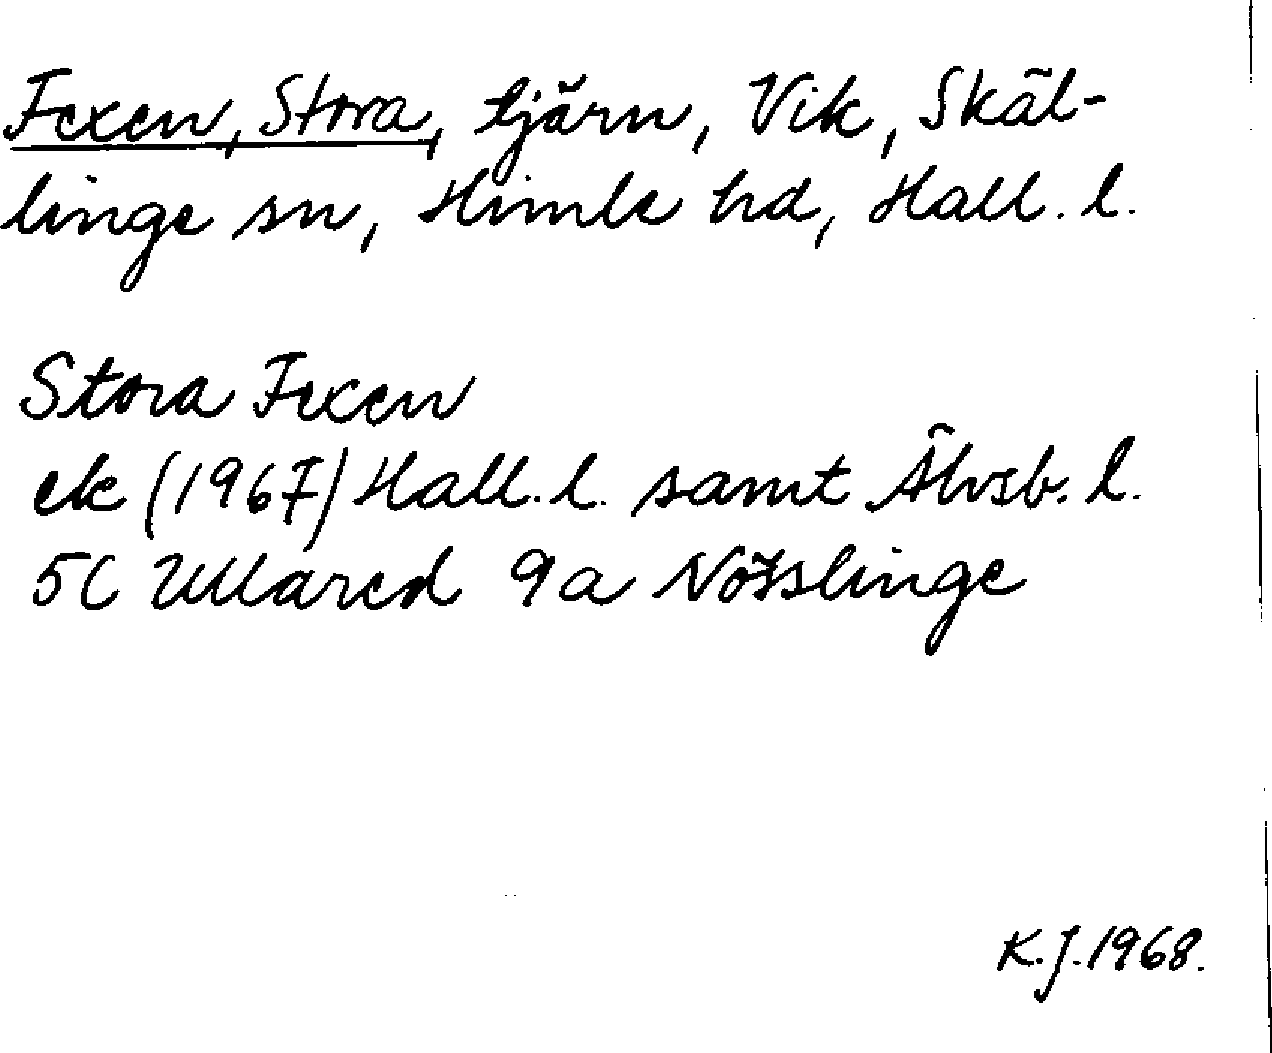 Fexen, Stora, tjärn, Vik, Skäl-
linge sn, Himle hd, Hall. l.
Stora Fexen
ek (1967) Hall. l. samt Älvsb. l.
5C Ullared 9a Nösslinge
K.J. 1968.